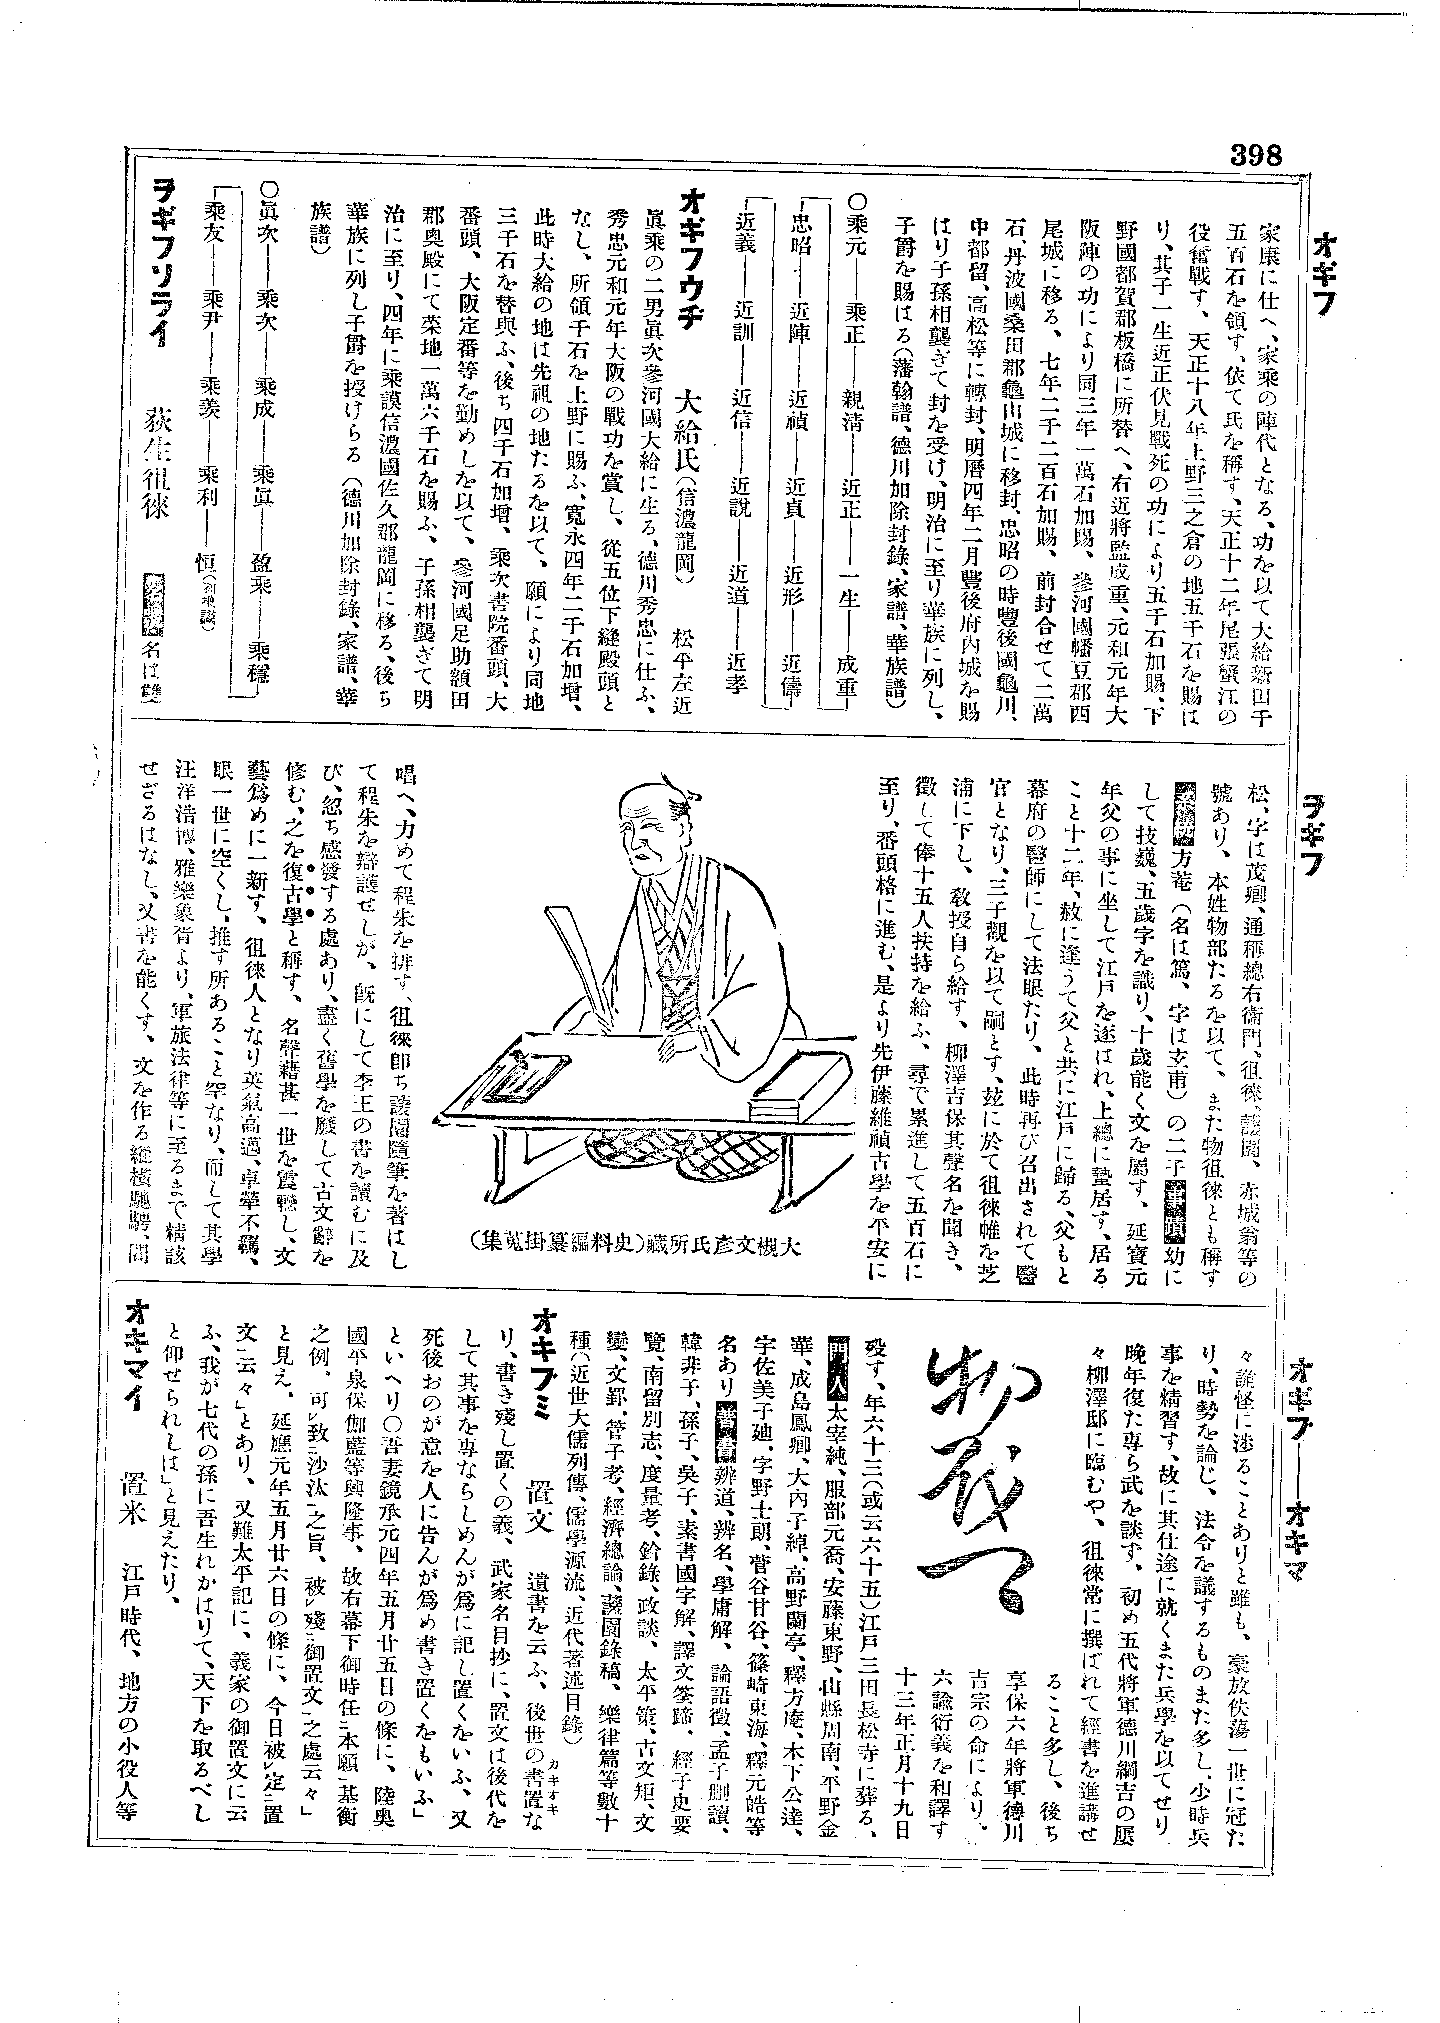 398
オギフ
家康に仕へ、家乘の陣代となる、功を以て大給新田千
五百石を領す、依て氏を稱す、天正十二年尾張蟹江の
役奮戰す、天正十八年上野三之倉の地五千石を賜は
り、其子一生近正伏見戰死の功により五千石加賜、下
野國都賀郡板橋に所替へ、右近將監成重、元和元年大
阪陣の功により同三年一萬石加賜、參河國幡豆郡西
尾城に移る、七年二千二百石加賜、前封合せて二萬
石、丹波國桑田郡龜山城に移封、忠昭の時豐後國龜川、
中都留、高松等に轉封、明曆四年二月豐後府内城を賜
はり子孫相襲ぎて封を受け、明治に至り華族に列し、
子爵を賜はる(藩翰譜、德川加除封錄、家譜、華族譜)
○乘元―乘正―親清―近正―一生―成重
忠昭―近陣―近禎―近貞―近形―近儔
近義―近訓―近信―近說―近道―近孝
オギフウヂ 大給氏(信濃龍岡) 松平左近
眞乘の二男眞次參河國大給に生る、德川秀忠に仕ふ、
秀忠元和元年大阪の戰功を賞し、從五位下縫殿頭と
なし、所領千石を上野に賜ふ、寬永四年二千石加增、
此時大給の地は先祖の地たるを以て、願により同地
三千石を替與ふ、後ち四千石加增、乘次書院番頭、大
番頭、大阪定番等を勤めしを以て、參河國足助額田
郡奧殿にて菜地一萬六千石を賜ふ、子孫相襲ぎて明
治に至り、四年に乘謨信濃國佐久郡龍岡に移る、後ち
華族に列し子爵を授けらる(德川加除封錄、家譜、華
族譜)
○眞次―乘次―乘成―乘眞―盈乘―乘穩
乘友―乘尹―乘羨―乘利―恒
ヲギフソライ 荻生徂徠 名は雙
ヲギフ
松、字は茂卿、通稱總右衞門、徂徠、蘐園、赤城翁等の
號あり、本姓物部たるを以て、また物徂徠とも稱す
方菴(名は篤、字は玄甫)の二子事蹟幼に
して技巍、五歲字を識り、十歲能く文を屬す、延寶元
年父の事に坐して江戶を逐はれ、上總に蟄居す、居る
こと十二年、赦に逢うて父と共に江戶に歸る、父もと
幕府の醫師にして法眼たり、此時再び召出されて醫
官となり、三子觀を以て嗣とす、玆に於て徂徠帷を芝
浦に下し、敎授自ら給す、柳澤吉保其聲名を聞き、
徵して俸十五人扶持を給ふ、尋で累進して五百石に
至り、番頭格に進む、是より先伊藤維禎古學を平安に
大槻文彥氏所藏(史料編纂掛蒐集)
唱へ、力めて程朱を排す、徂徠卽ち蘐園隨筆を著はし
て程朱を辯護せしが、旣にして李王の書を讀むに及
び、忽ち感發する處あり、盡く舊學を廢して古文辭を
修む、之を復古學と稱す、名聲藉甚一世を震轢し、文
藝爲めに一新す、徂徠人となり英氣高邁、卓犖不羈、
眼一世に空くし、推す所あること罕なり、而して其學
汪洋浩博、雅樂象胥より、軍旅法律等に至るまで精該
せざるはなし、又書を能くす、文を作る縱橫馳騁、間
オギブ―オキマ
々詭怪に涉ることありと雖も、豪放佚蕩一世に冠た
り、時勢を論じ、法令を議するものまた多し、少時兵
事を精習す、故に其仕途に就くまた兵學を以てせり、
晚年復た專ら武を談ず、初め五代將軍德川綱吉の屢
々柳澤邸に臨むや、徂徠常に撰ばれて經書を進講せ
ること多し、後ち
享保六年將軍德川
吉宗の命により、
六諭衍義を和譯す
十三年正月十九日
歿す、年六十三(或云六十五)江戶三田長松寺に葬る、
門人太宰純、服部元喬、安藤東野、山縣周南、平野金
華、成島鳳卿、大內子綽、高野蘭亭、釋方庵、木下公達、
宇佐美子迪、宇野士朗、菅谷甘谷、篠崎東海、釋元皓等
名あり著書辨道、辨名、學庸解、論語徵、孟子刪讀、
韓非子、孫子、吳子、素書國字解、譯文筌蹄、經子史要
覽、南留別志、度量考、鈐錄、政談、太平策、古文矩、文
變、文罫、管子考、經濟總論、蘐園錄稿、樂律篇等數十
種(近世大儒列傳、儒學源流、近代著述目錄)
オキブミ 置文 遺書を云ふ、後世の書置(カキオキ)な
り、書き殘し置くの義、武家名目抄に、置文は後代を
して其事を專ならしめんが爲に記し置くをいふ、又
死後おのが意を人に告んが爲め書き置くをもいふ」
といへり○吾妻鏡承元四年五月廿五日の條に、陸奧
國平泉保伽藍等興隆事、故右幕下御時任二本願一基衡
之例、可レ致二沙汰一之旨、被レ殘二御置文一之處云々」
と見え、延應元年五月廿六日の條に、今日被レ定二置
文一云々」とあり、又難太平記に、義家の御置文に云
ふ、我が七代の孫に吾生れかはりて、天下を取るべし
と仰せられしは」と見えたり、
オキマイ 置米 江戶時代、地方の小役人等